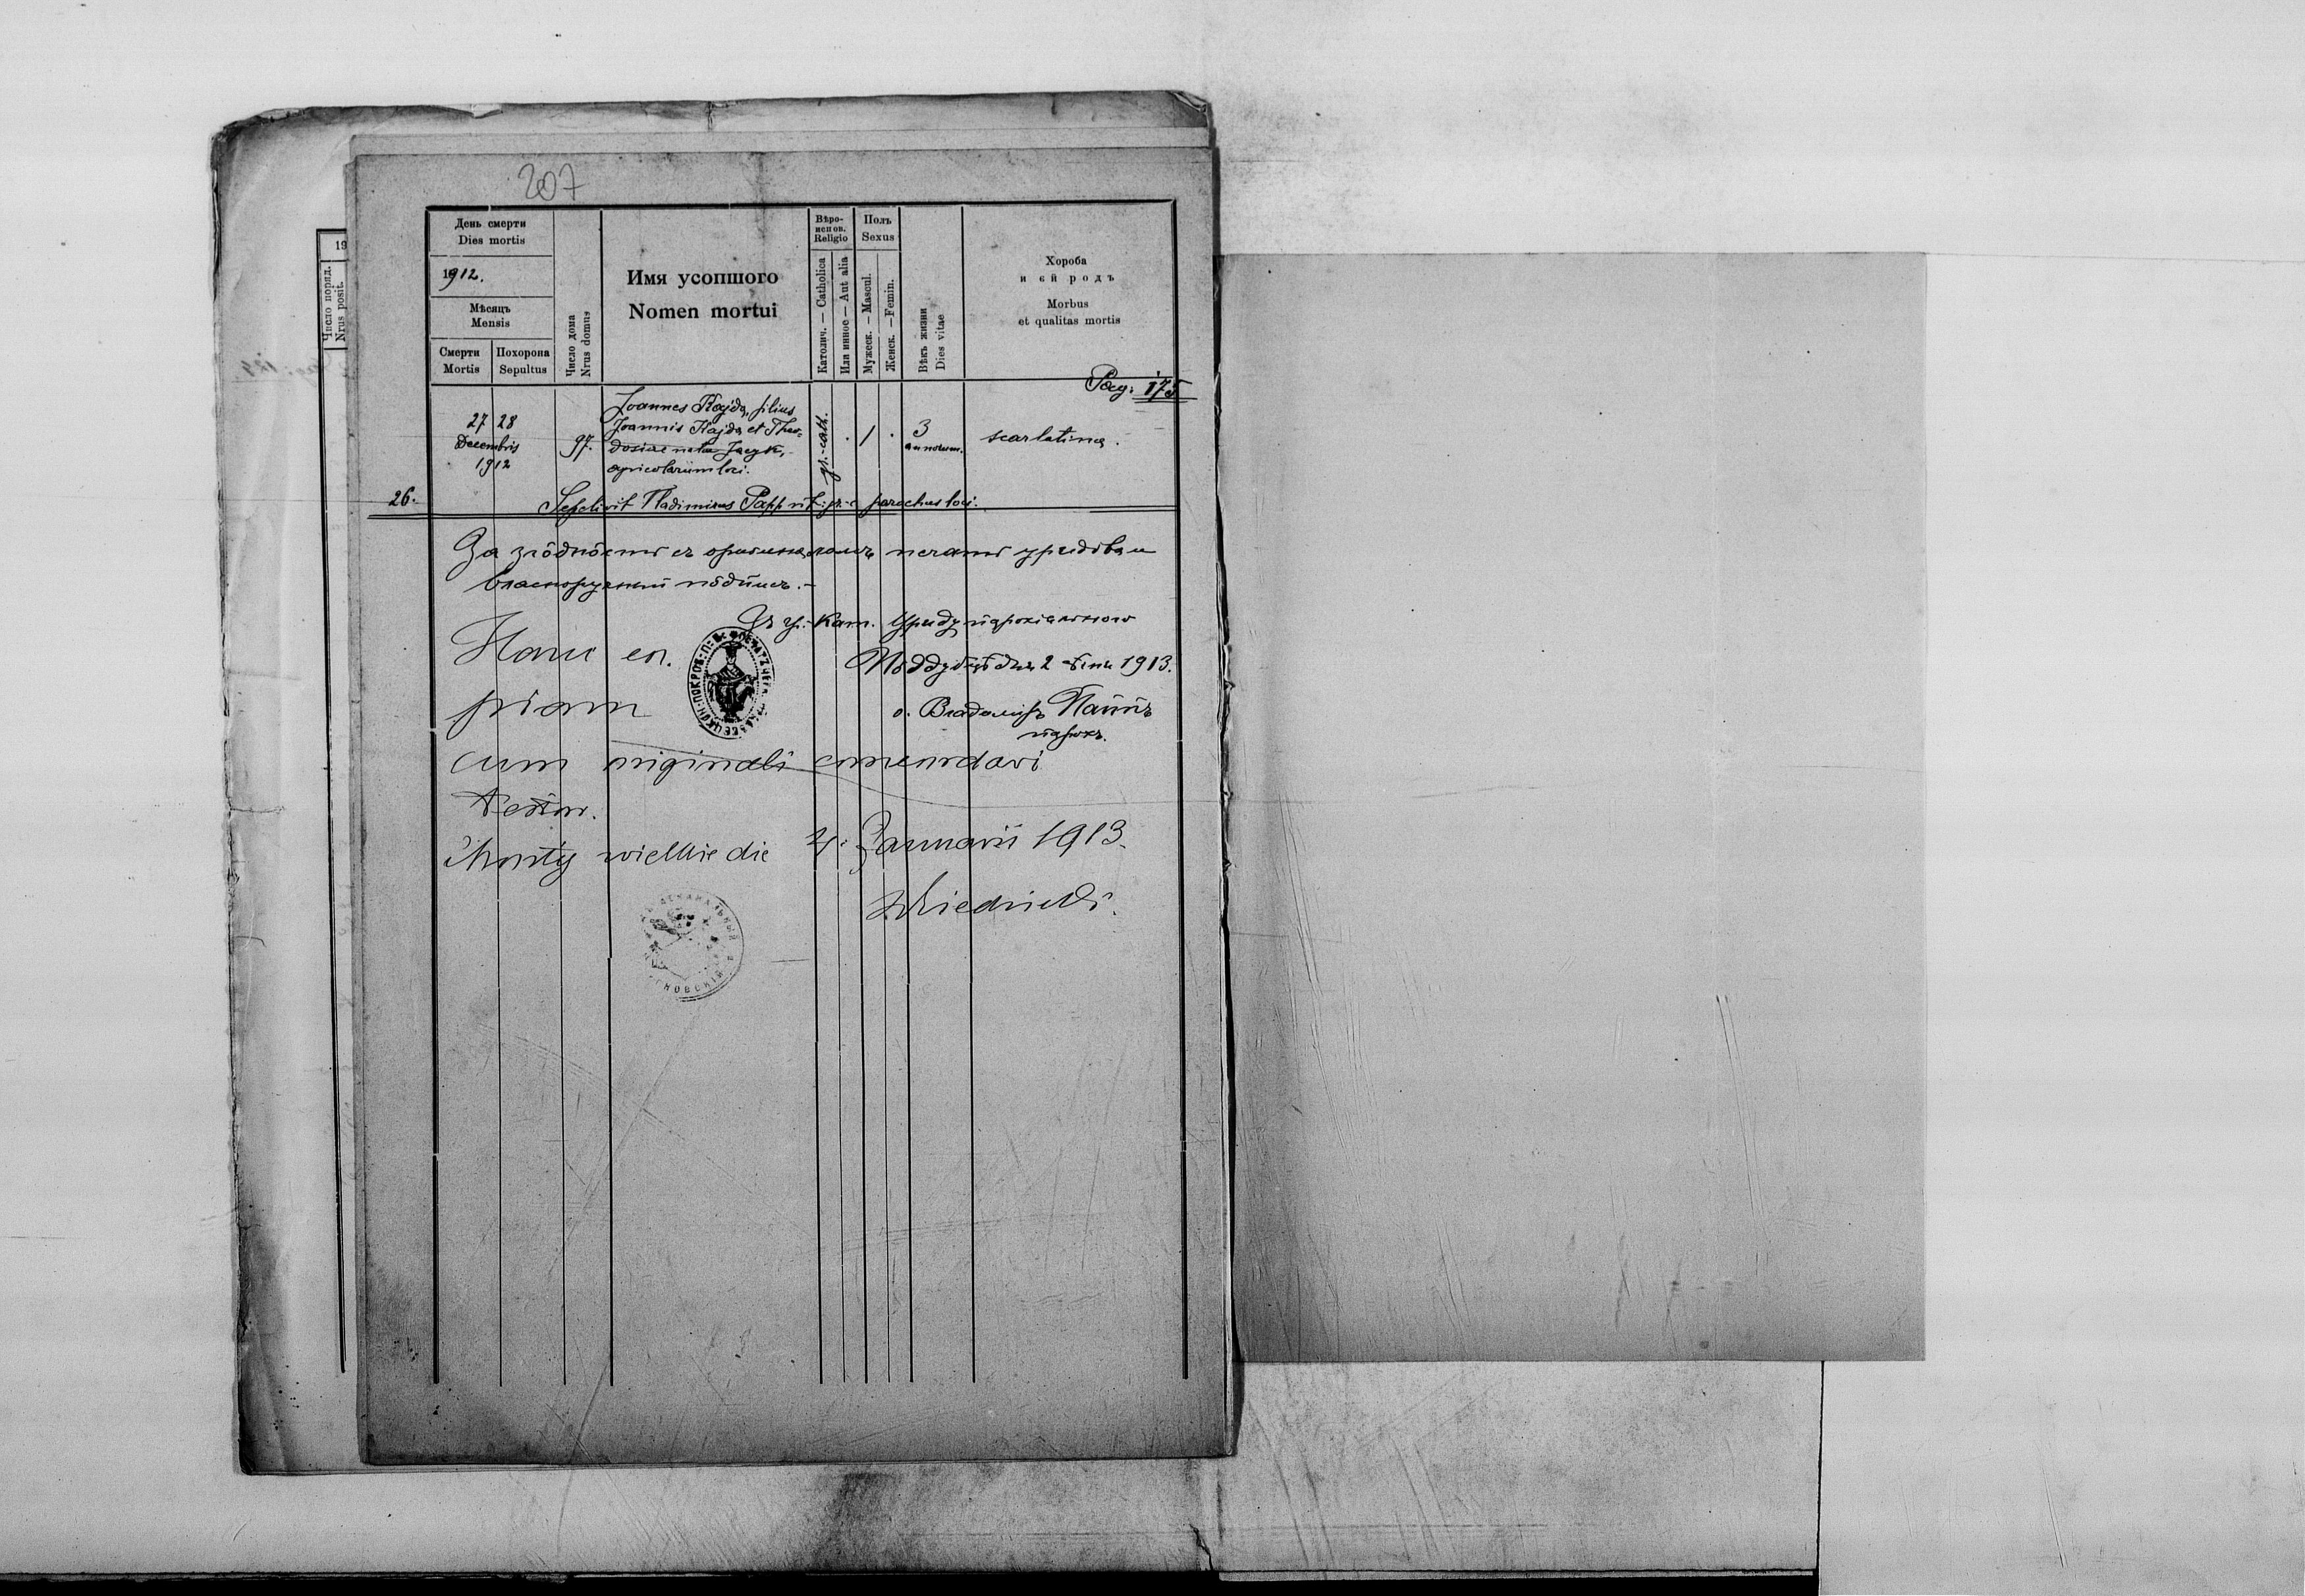 207
День смерти
Dies mortis
1912.
Мѣсяцъ
Mensis
Смерти
Mortis
Похорона
Sepultus
Число дома
Nrus domus
Имя усопшого
Nomen mortui
Вѣро-
испов.
Religio
Католич. — Catholica
Или инное — Aut alia
Полъ
Sexus
Мужеск. — Mascul.
Женск. — Femin.
Вѣкъ жизни
Dies vitae
Хороба
и єй родъ
Morbus
et qualitas mortis
19
Число поряд.
Nrus posit.
Pag: 175
27 28
Decembris
1912
97.
Joannes Hajda, filius
Joannis Hajda et Theo-
dosiae nata Jacyk,
agricolarum loci.
gr.-cath.
1
3
annorum.
scarlatina.
26.
Sepelivit Vladimirus Papp gr.-c parochus loci.
За згôдность съ оригиналомъ печать урядова и
власноручный пôдпись.-
Зъ гр.-кат. Уряду парохіяльного
Пôддубцѣ дня 2 Сѣчня 1913.
о. Владомиръ Паппъ
парохъ.
Hanc co.
piam
cum originali concordari
testor.
Mosty wielkie die 4. Januarii 1913.